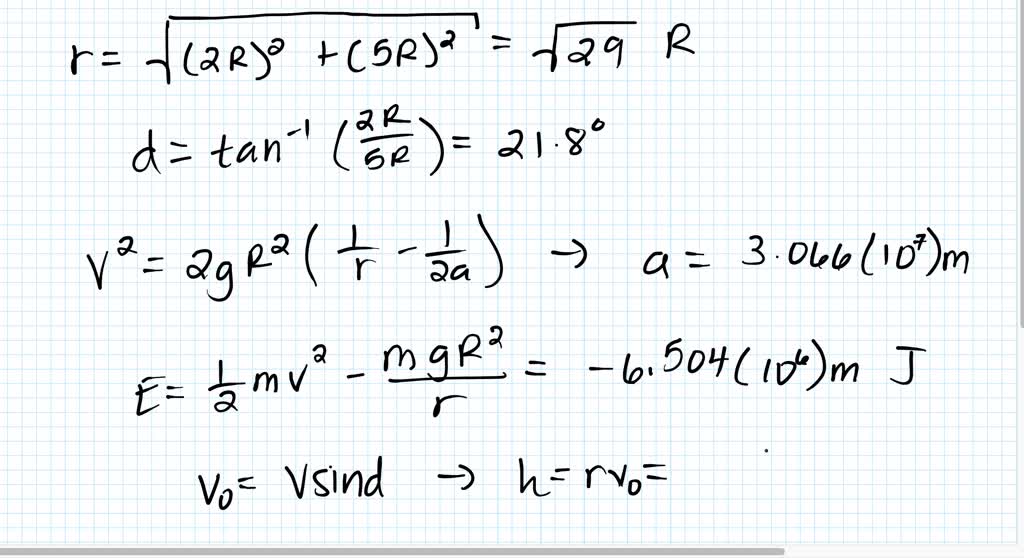 r = √((2R)² + (5R)²) = √29 R
d = tan⁻¹ (2R/5R) = 21.8°
V² = 2gR² (1/r - 1/2a) → a = 3.066(10⁷)m
E = 1/2 mv² - mgR²/r = -6.504(10⁶)m J
V₀ = Vsind → h = rv₀ =